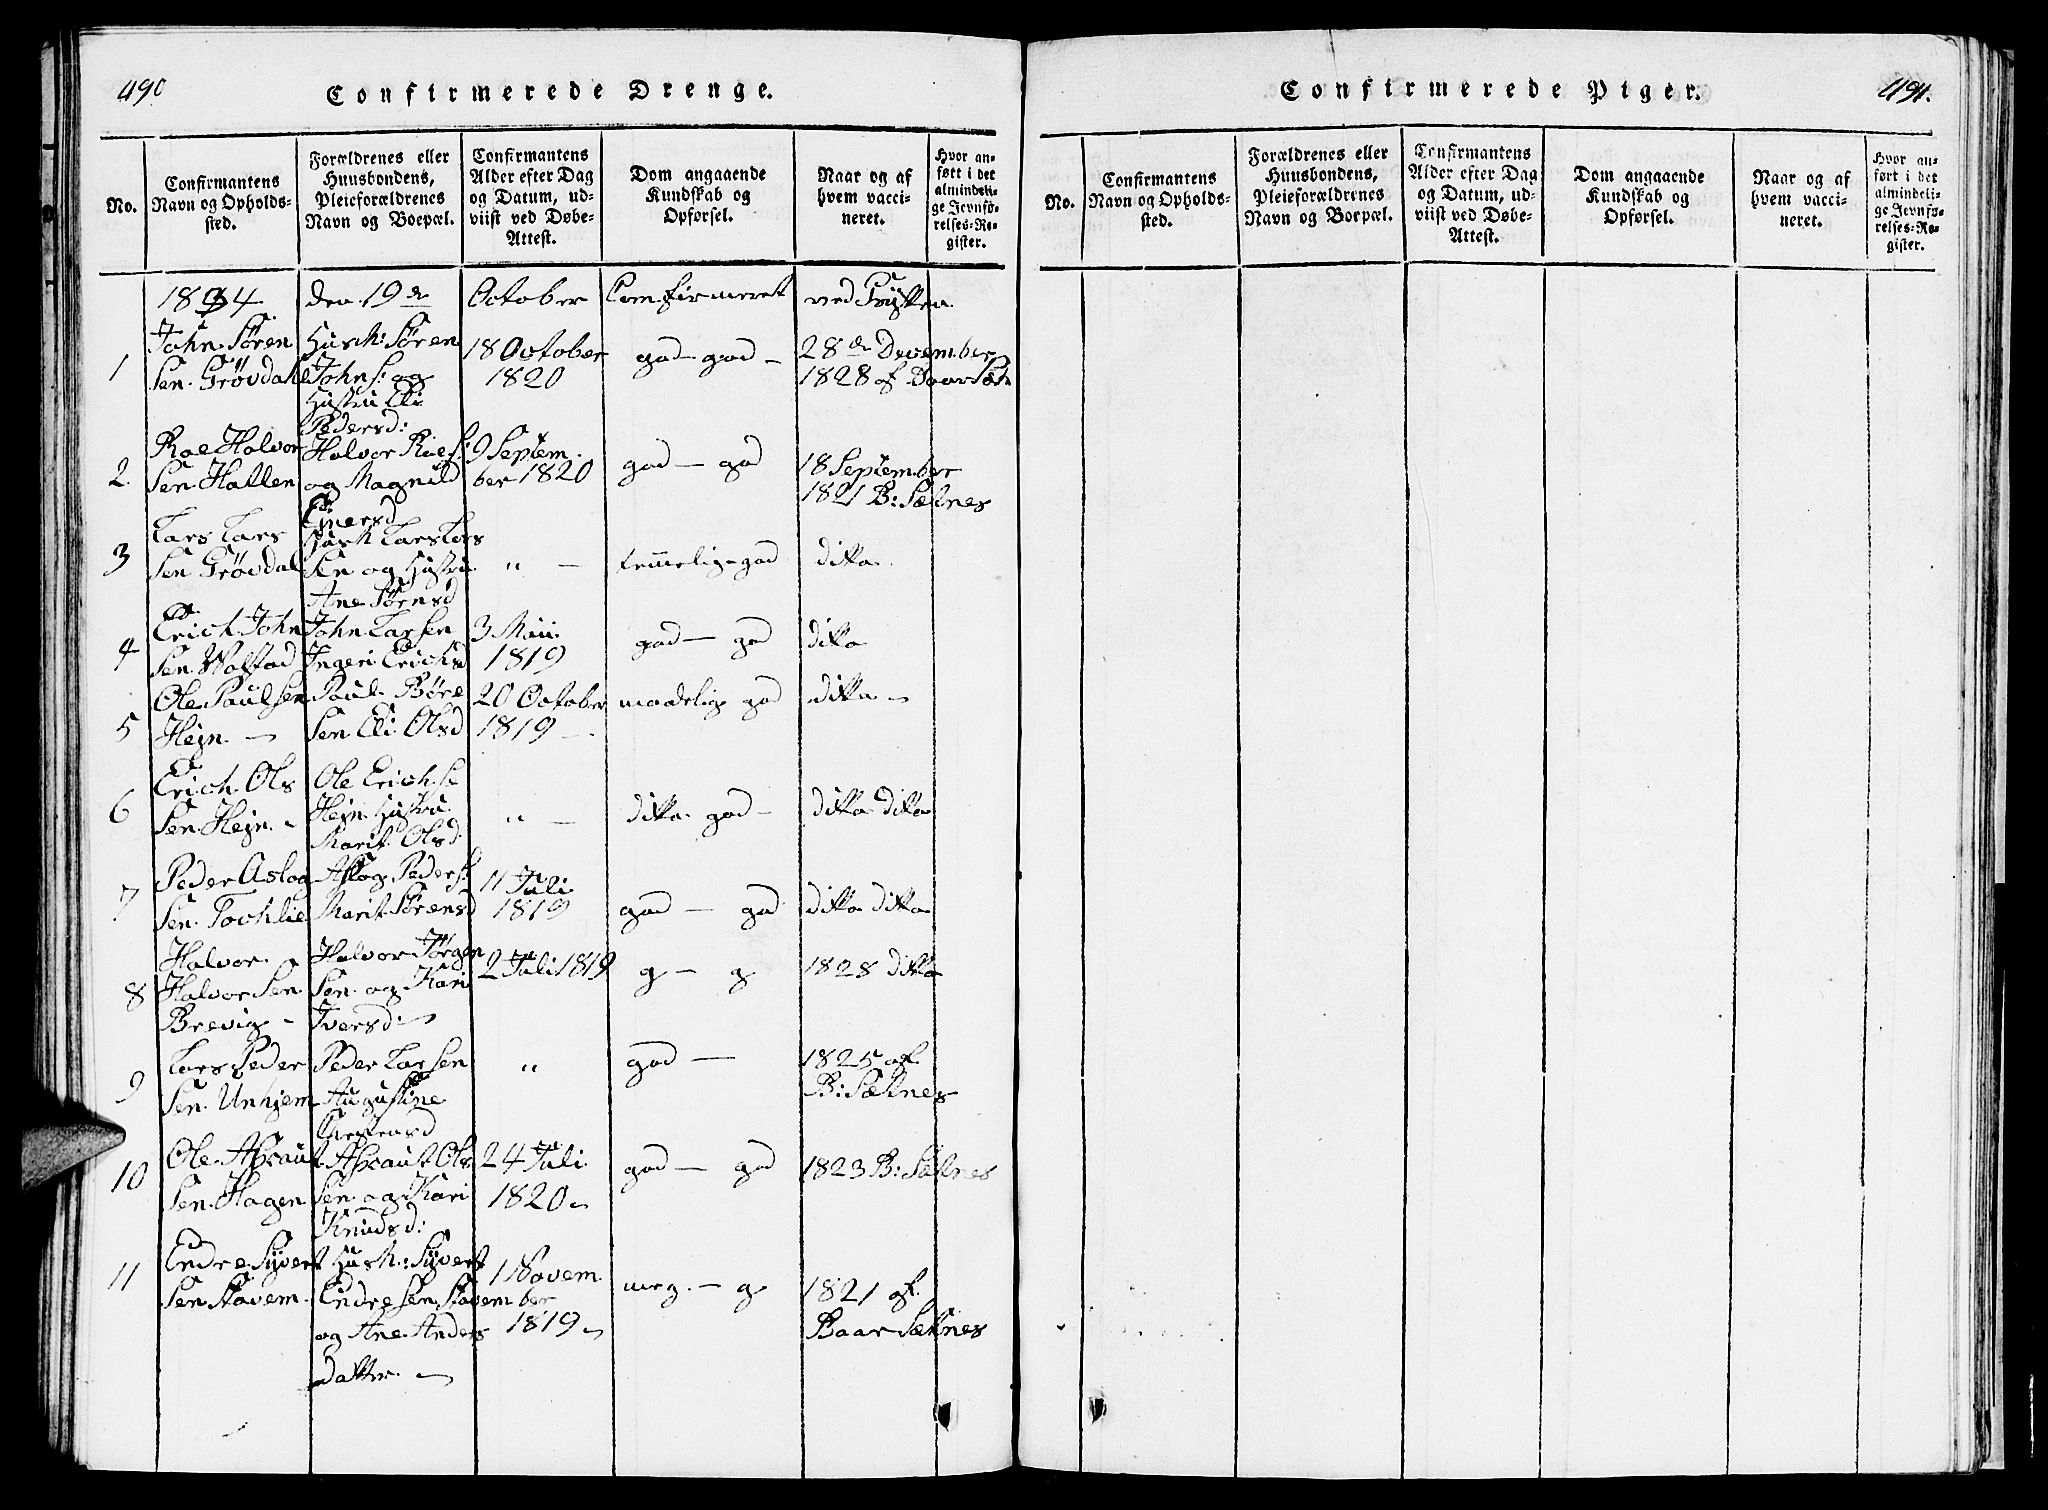 490
Confirmerede Drenge.
No.
Confirmantens
Navn og Opholds-
sted.
Forældrenes eller
Huusbondens,
Pleieforældrenes
Navn og Boepæl.
Confirmantens
Alder efter Dag
og Datum, ud-
viist ved Døbe-
Attest.
Dom angaaende
Kundskab og
Opførsel.
Naar og af
hvem vacci-
neret.
Hvor an-
ført i det
almindeli-
ge Jevnfø-
relses-Re-
gister.
1834 den 19de October Comfirmeret ved
1
John Søren
Sen Grøvdahl
Husm: Søren
Johns: og
Hustru Eli
Pedersd:
18 October
1820
god - god -
28de December
1828 af
2.
Roe Halvor
Sen Hatlen
Halvor Roes:
og Magnild
Einersd
9 Septem
ber 1820
god - god
18 September
1821 B: Sætnes
3
Lars Lars
Sen Grøvdal
Husm Lars Lars
Sen og Hustru
Ane Sørnsd
" -
temmelig - god
ditto
4
Erich John
Sen Wolstad
John Larsen
Ingeri Erichsd
3 Mii
1819
god - god
ditto
5
Ole Paulsen
Hejn -
Paul Børe
Sen Eli Olsd
20 October
1819 -
maadelig god
ditto -
6
Erich Ols
Sen Hejn -
Ole Erichse
Hejn Hustru
Marit Olsd
" -
ditto god -
ditto ditto
7
Peder Aslag
Sen Tochlie
Aslag Peders:
Marit Sørensd
11 Juli
1819
god - god
ditto ditto
8
Halvor
Halvor Sen
Brevig -
Halvor Jørgen
Sen og Kari
Iversd: -
2 Juli 1819
g - g
1828 ditto
9
Lars Peder
Sen Unhjem
Peder Larsen
Augustine
"
god -
1825 af
B: Sætnes
10
Ole Asraut
Sen Hagen
Asraut Ols
Sen og Kari
Knudsd:
24 Juli
1820 -
god - god
1823 B: Sætnes
11
Endre Syvert
Sen Stavem
Husm: Syvert
Endresen Stavem
og Ane Anders
datter -
1 Novem
ber
1819 -
meg - g
1821 af
Baar Sætnes
Confirmerede Piger.
491.
No.
Confirmantens
Navn og Opholds-
sted.
Forældrenes eller
Huusbondens,
Pleieforældrenes
Navn og Boepæl.
Confirmantens
Alder efter Dag
og Datum, ud-
viist ved Døbe-
Attest.
Dom angaaende
Kundskab og
Opførsel.
Naar og af
hvem vacci-
neret.
Hvor an-
ført i det
almindeli-
ge Jevnfø-
relses-Re-
gister.